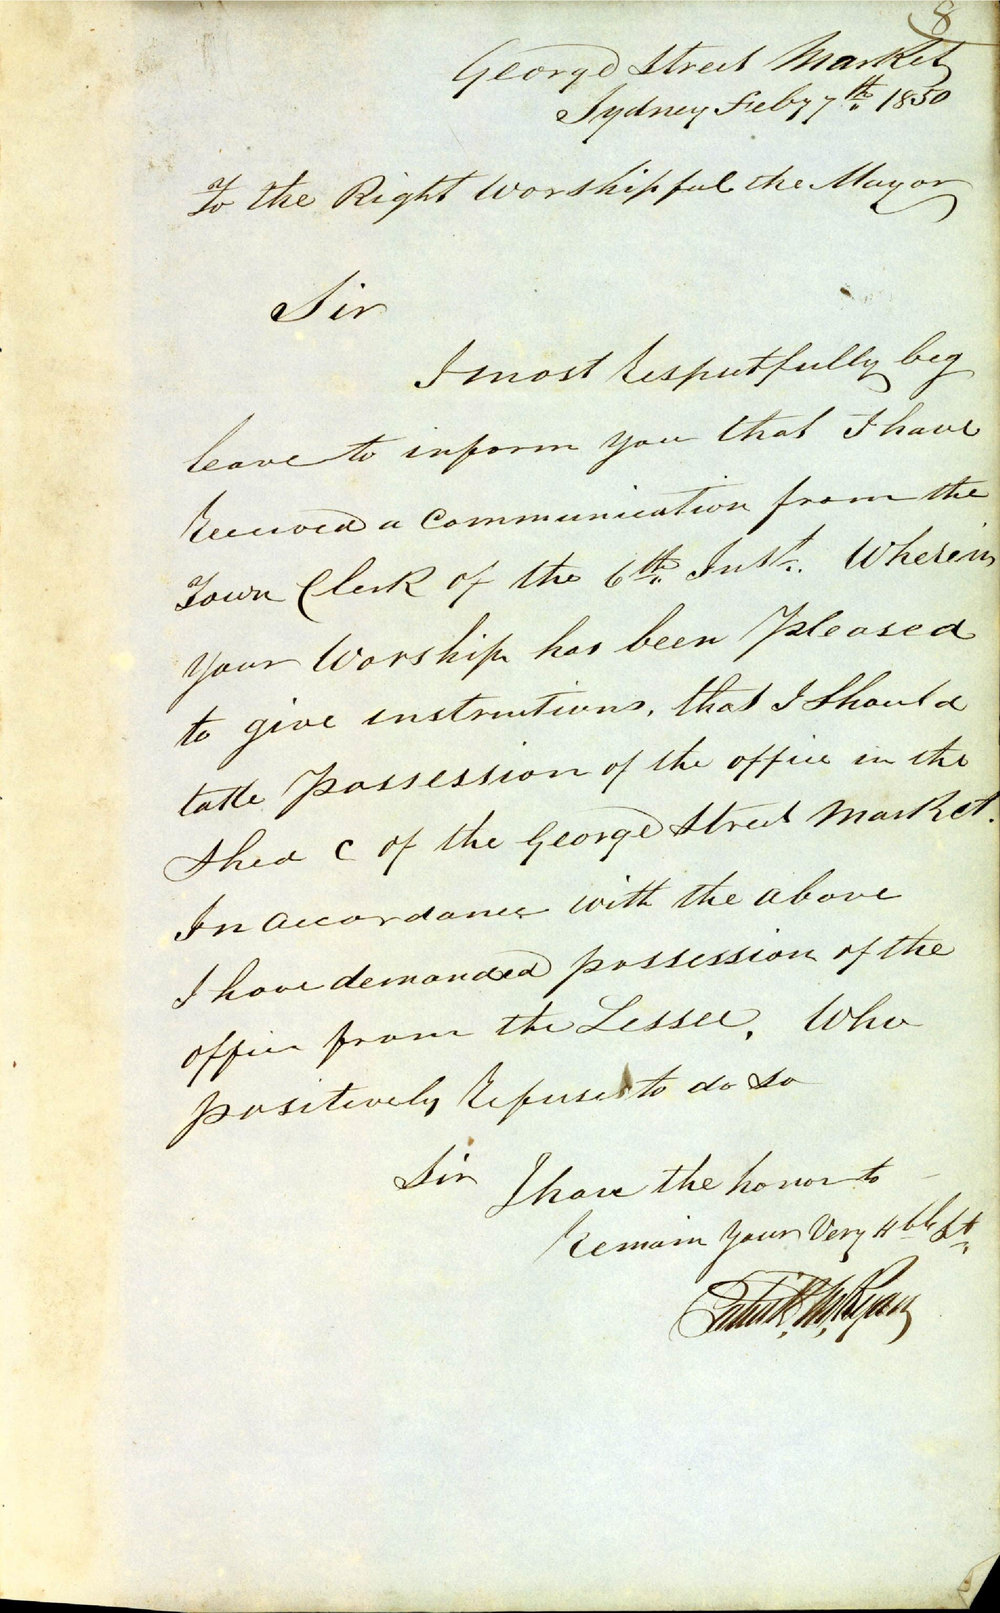 8
George Street Market
Sydney Feby 7th. 1850
To the Right Worshipful the Mayor
Sir
I most Respectfully beg
leave to inform you that I have
Received a Communication from the
Town Clerk of the 6th. Inst. Wherein
your Worship has been Pleased
to give instructions, that I Should
take Possession of the office in the
Shed C of the George Street Market.
In accordance with the above
I have demanded possession of the
office from the Lessee, Who
positively Refuses to do so
Sir I have the honor to
Remain Your Very Hble St.
Patrick. M. Ryan